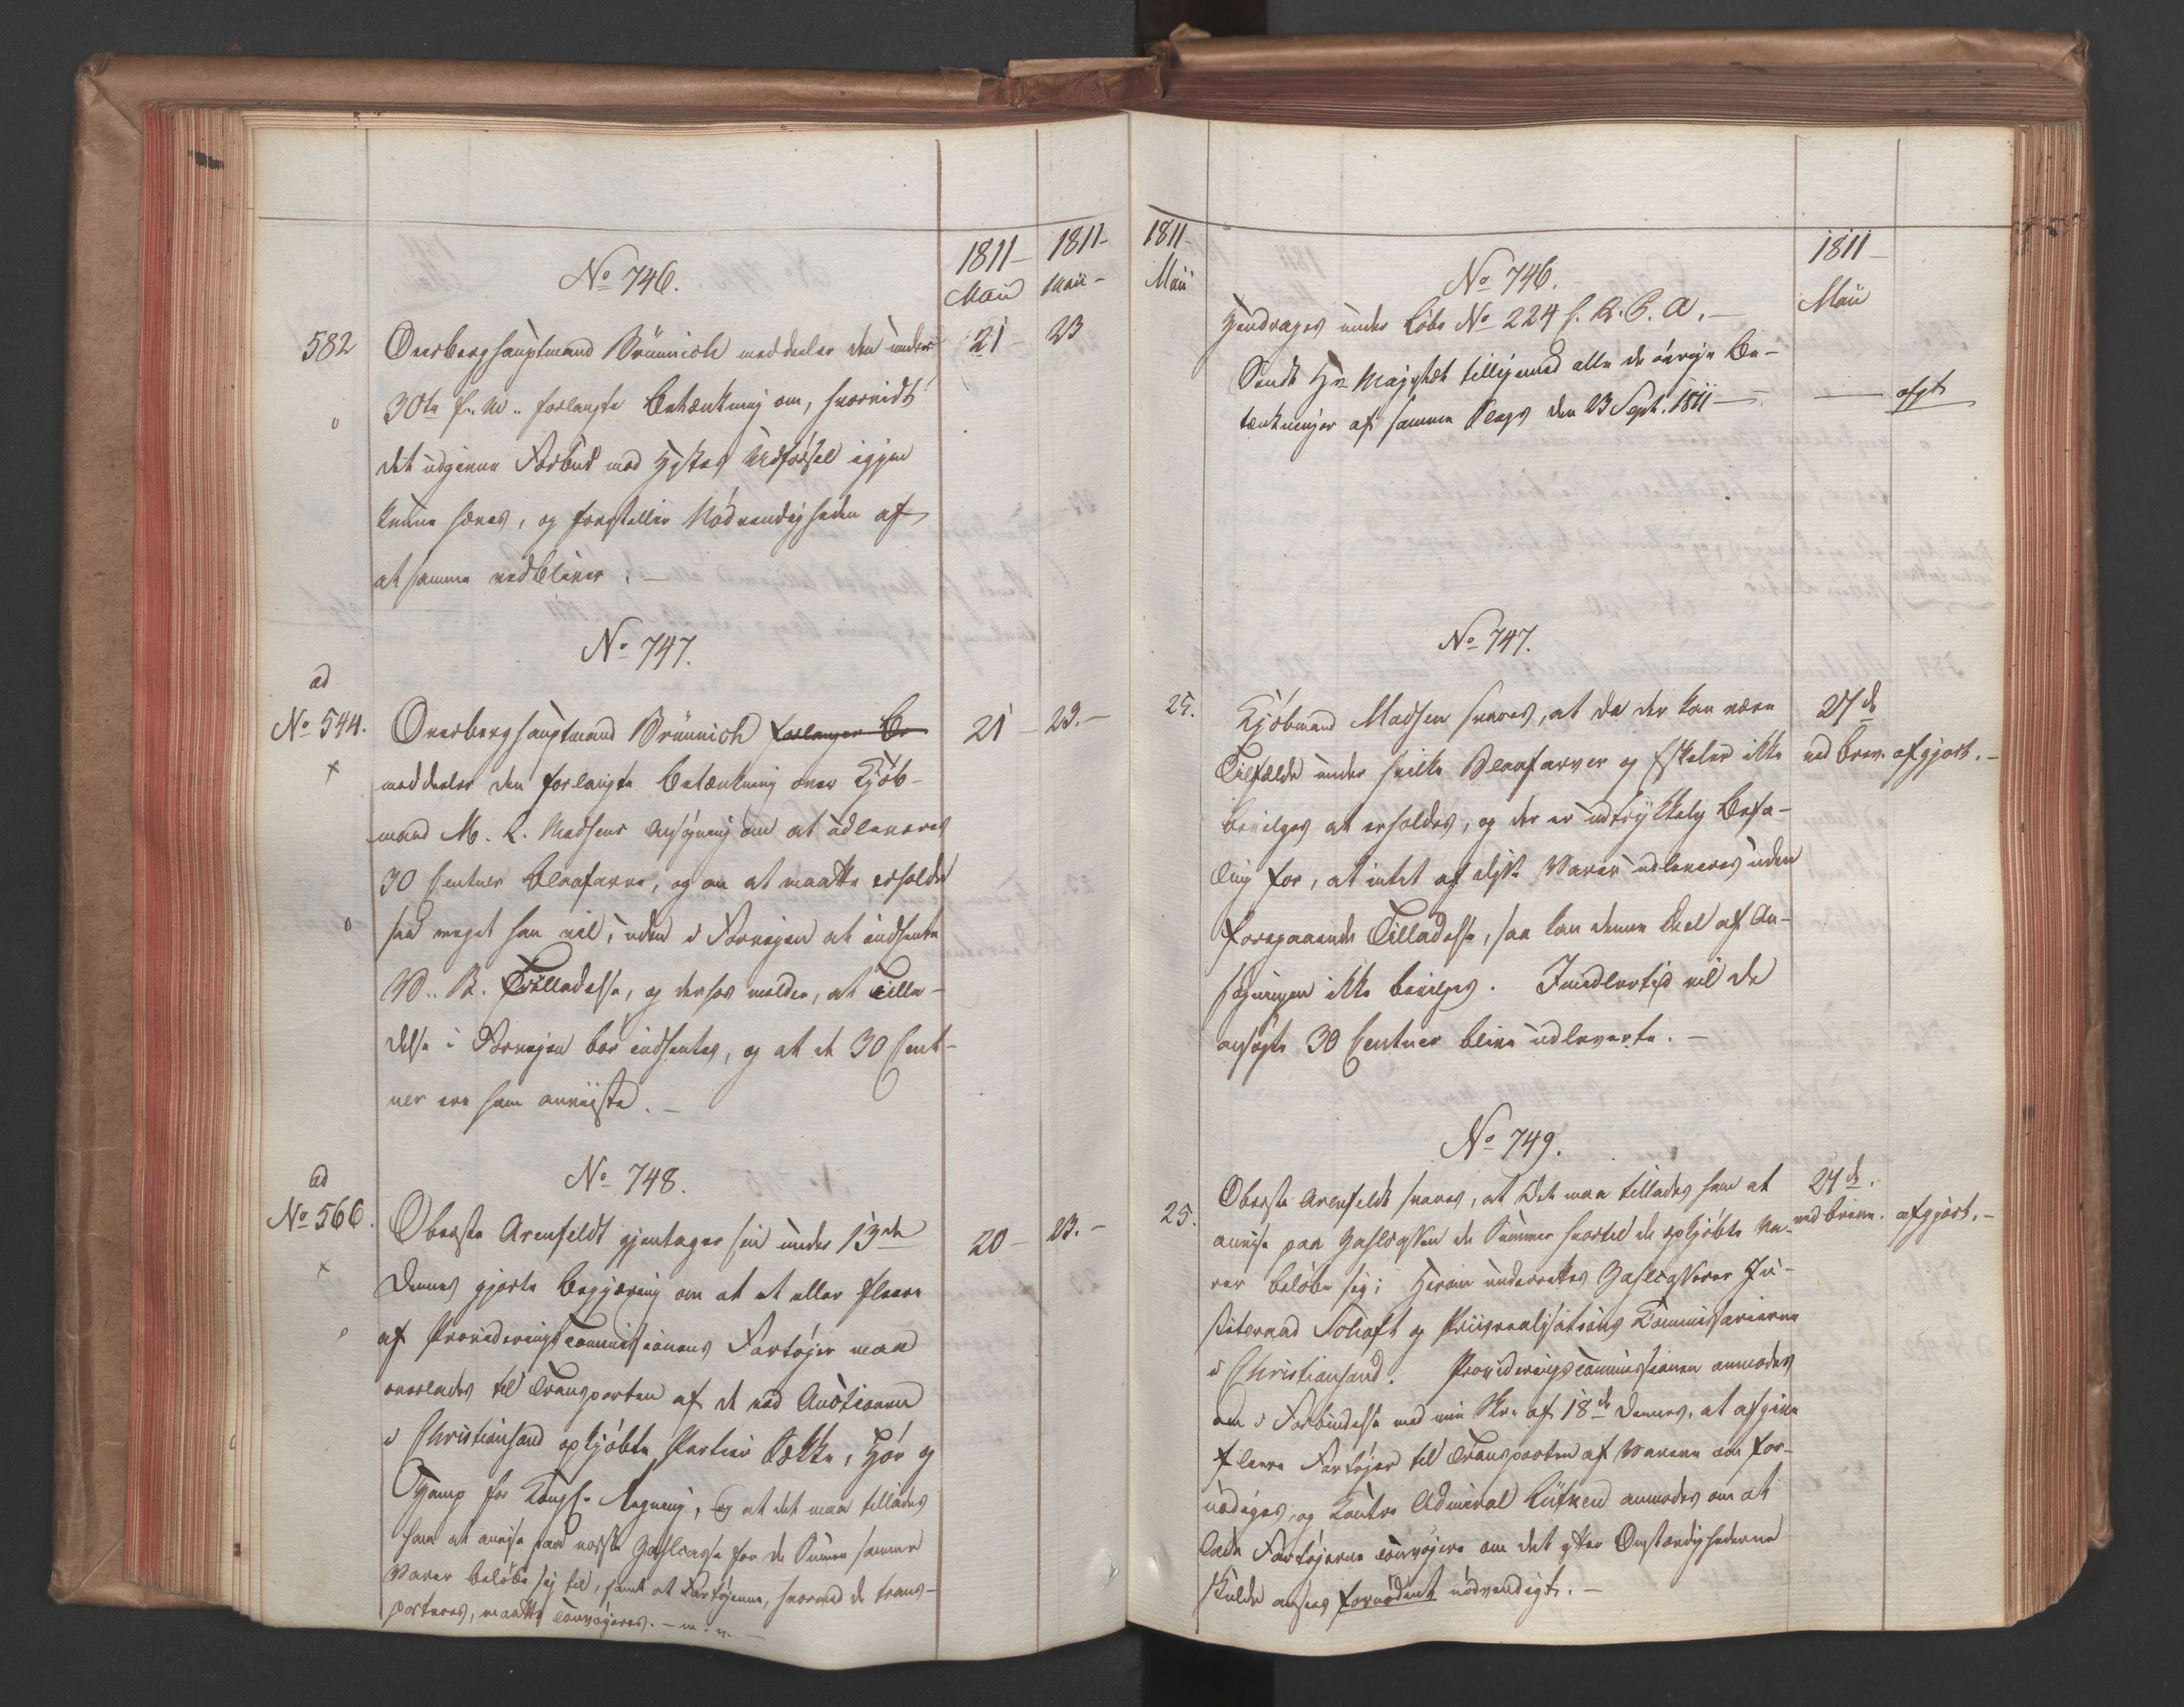 1811–
Maii
1811–
Maii –
No 746.
582
Oversberghauptmand Brünnich meddeler den under
21 –
23
30te f. M. forlangte Betænkning om, hvorvidt
det udgivne Forbud mod Heste Udførsel igjen
kunne hæves, og forestiller Nødvendigheden af
at samme vedbliver. –
No 747.
ad
No 544.
Oversberghauptmand Brünnich forlanger Be
21 –
23. –
meddeler den forlangte Betænkning over Kjøb-
mand M. L. Madsens Ansøgning om at udleveres
30 Centner Blaafarve, og om at maatte erholde
saa meget han vil, uden i Forvejen at indhente
Tilladelse, og derhos melder, at Tilla-
delse i Forvejen bør indhentes, og at de 30 Cent-
ner ere ham anviiste. –
No 748.
ad
No 566.
Oberste Arenfeldt gjentager sin under 13de
20 –
23. –
Dennes gjorte Begjæring om at et eller fleere
af Provideringscommissionens Fartøjer maa
overlades til Transporten af de ved Auctionen
i Christiansand opkjøbte Partier Hør og
Hamp for Kongl. Regning, og at det maa tillades
ham at anvise paa næste Zahlcasse for de Summer samme
Varer beløbe sig til, samt at Fartøjerne, hvormed de trans-
porteres, maatte convoyeres. – m. v. –
1811–
Maii
No 746.
1811 –
Maii
Hendrages under Løbe No 224
Sendt Hs Majestæt tilligemed alle de øvrige Be-
tænkninger af samme Slags den 23 Sept. 1811 –
afgt
No 747.
25.
Kjøbmand Madsen svares, at da der kan være
27de
Tilfælde under hvilke Blaafarver og Eskeler ikke
ved Brev.
afgjort. –
bevilges at erholdes, og der er udtrykkelig Befa-
ling for, at intet af slige Varer udleveres uden
foregaaende Tilladelse, saa kan denne Deel af An-
søgningen ikke bevilges. Imidlertid vil de
ansøgte 30 Centner blive udleverte. –
No 749.
25.
Oberste Arenfeldt svares, at det maa tillades ham at
27de.
anvise paa Zahlcassen de Summer hvortil de opkjøbte Va-
ved Breve.
afgjort. –
rer beløbe sig; Herom underrettes Zahlcasserer Ju-
stitsraad Tohaft og Priisrealisations Commissarierne
i Christiansand. Provideringscommissionen anmodes
om i Forbindelse med min Skr. af 18de Dennes, at afgive
fleere Fartøjer til Transporten af Varerne om for-
nødiges, og Contre Admiral Lütken anmodes om at
lade Fartøjerne convoyere om det efter Omstændighederne
skulde ansees fornødent nødvendigt. –